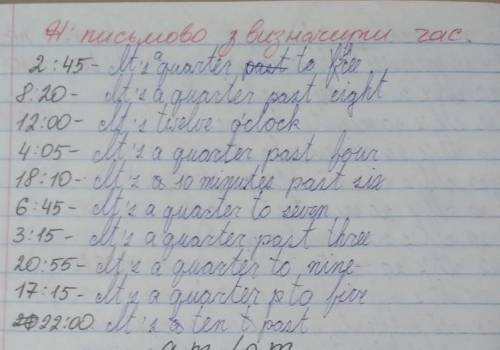 H: письмово з визначити час.
2:45- It's a quarter past to free
8:20- It's a quarter past eight
12:00- It's twelve o'clock
4:05- It's a quarter past four
18:10- It's a 10 minutes past six
6:45- It's a quarter to seven
3:15- It's a quarter past three
20:55- It's a quarter to nine
17:15- It's a quarter pto five
22:00. It's a ten t past
a.m / p.m